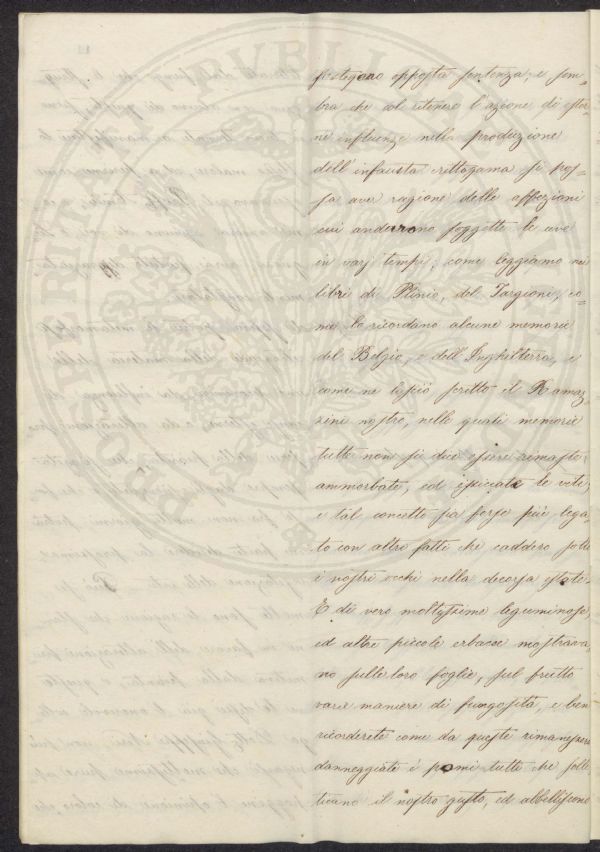 sostegono opposta sentenza, e sem-
bra che col ritenere l'azione di ester-
ne influenze nella produzione
dell'infausta crittogama si pos-
sa aver ragione delle affezioni
cui anderono soggette le uve
in varj tempi; come leggiamo nei
libri di Plinio, del Targioni, co-
me lo ricordano alcune memorie
del Belgio, e dell'Inghilterra, e
come ne lasciò scritto il Ramaz-
zini nostro, nelle quali memorie
tutte non si dice essere rimaste
ammorbate, ed isiccate le viti;
e tal concetto sia forse più lega-
to con altri fatti che caddero sotto
i nostri occhi nella decorsa estate.
E di vero moltissime leguminose,
ed altre piccole erbacce mostrava-
no sulle loro foglie, sul frutto
varie maniere di fungosità, e ben
ricorderete come da queste rimanessero
danneggiati i pomi tutti che solle-
ticano il nostro gusto, ed abbelliscono
PROSPERITATI PVBLICAE